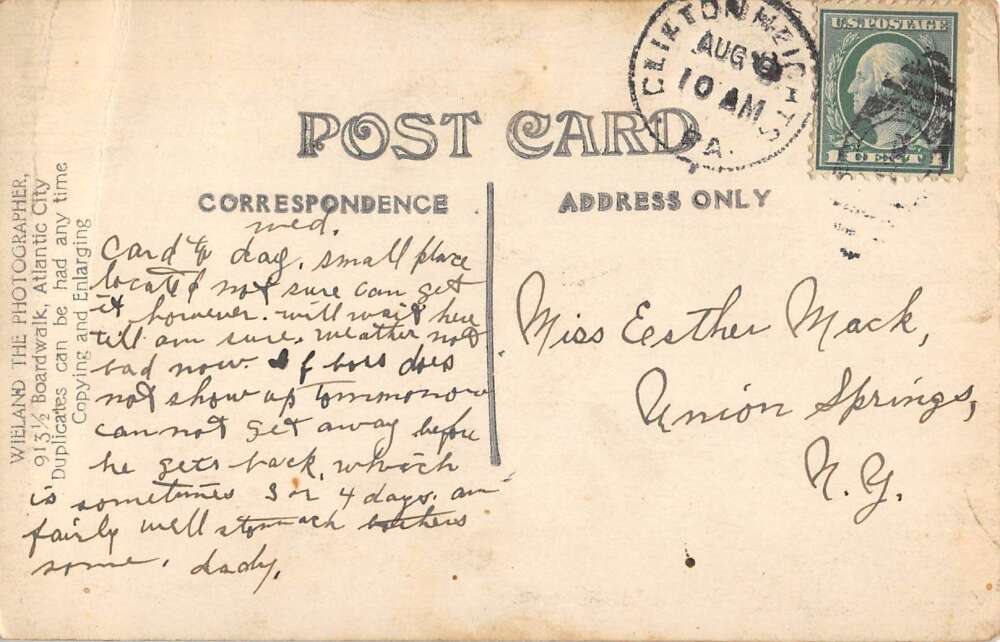 CLIFTON HEIGHTS
AUG
10 AM
PA.
U.S. POSTAGE
1 CENT 1
POST CARD
CORRESPONDENCE
ADDRESS ONLY
WIELAND THE PHOTOGRAPHER,
913½ Boardwalk, Atlantic City
Duplicates can be had any time
Copying and Enlarging
wed.
Card to day. small place
located not sure can get
it however. will wait here
till am sure. weather not
bad now. If boss does
not show up tommorow
can not get away before
he gets back, which
is sometimes 3 or 4 days. am
fairly well stomach bothers
some. dady.
Miss Eesther Mack,
Union Springs,
N.Y.